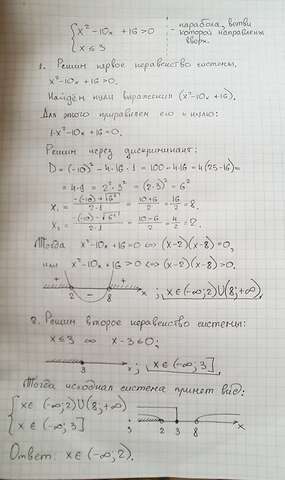 { x² - 10x + 16 > 0
x ≤ 3
- парабола, ветви
которой направлены
вверх.
1. Решим первое неравенство системы,
x² - 10x + 16 > 0.
Найдём нули выражения (x² - 10x + 16),
Для этого приравняем его к нулю:
1·x² - 10x + 16 = 0.
Решим через дискриминант:
D = (-10)² - 4·16·1 = 100 - 4·16 = 4(25 - 16) =
= 4·9 = 2²·3² = (2·3)² = 6²
x₁ = (-(-10) + √6²)/(2·1) = (10+6)/2 = 16/2 = 8.
x₂ = (-(-10) - √6²)/(2·1) = (10-6)/2 = 4/2 = 2.
Тогда x² - 10x + 16 = 0 ⇔ (x-2)(x-8) = 0,
или x² - 10x + 16 > 0 ⇔ (x-2)(x-8) > 0.
+ - + 2 8 x ; x ∈ (-∞; 2) ∪ (8; +∞)
2. Решим второе неравенство системы:
x ≤ 3 ⇔ x - 3 ≤ 0;
3 x ; x ∈ (-∞; 3]
Тогда исходная система примет вид:
{ x ∈ (-∞; 2) ∪ (8; +∞)
x ∈ (-∞; 3]
2 3 8 x
Ответ: x ∈ (-∞; 2).